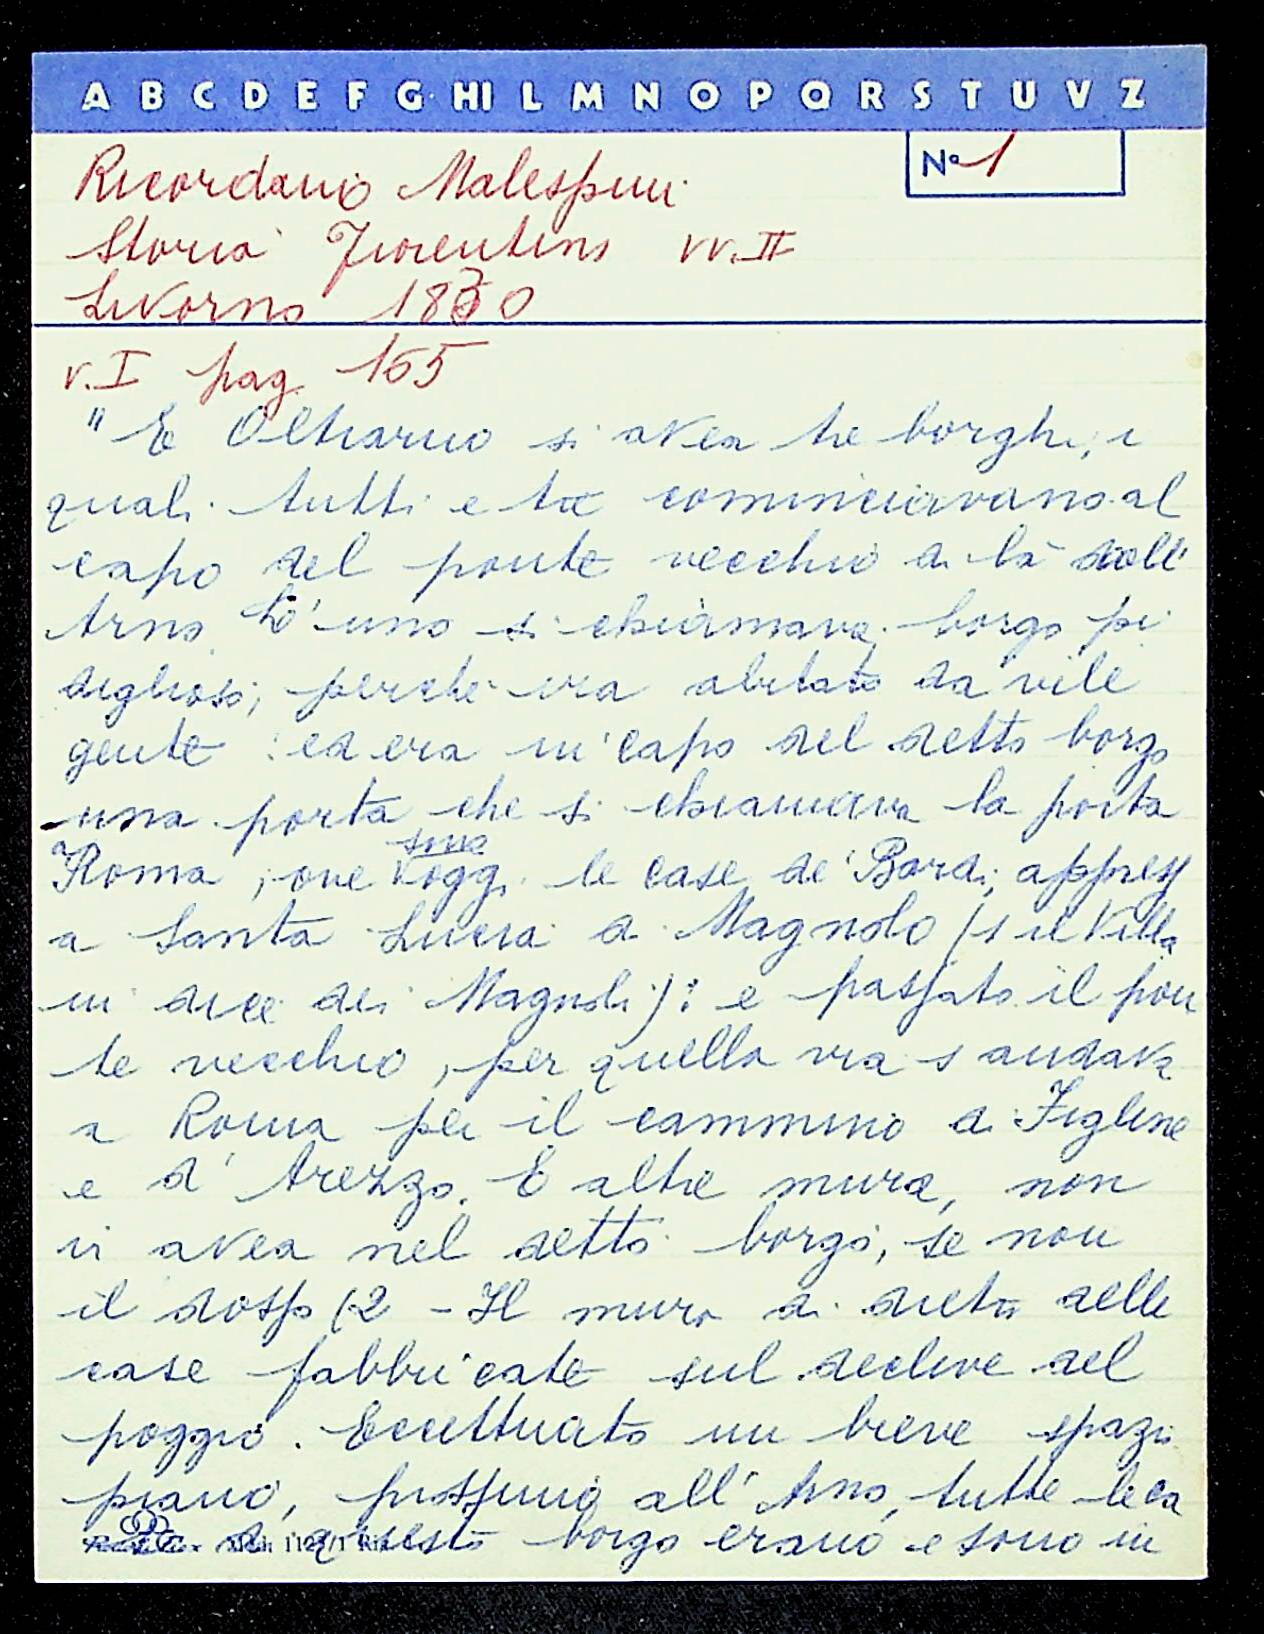 A B C D E F G HI L M N O P Q R S T U V Z
N° 1
Ricordano Malespini
Storia Fiorentina vv. II
Livorno 1830
v. I pag. 165
" E Oltrarno si avea tre borghi, i
quali tutti e tre cominciavano al
capo del ponte vecchio di là dell'
Arno. L'uno si chiamava borgo pi
diglioso; perché era abitato da vile
gente: ed era in capo del detto borgo
una porta che si chiamava la porta
a Roma, ove sono oggi le case de' Bardi, appress
a Santa Lucia di Magnolo (1 il Villa
ni dice dei Magnoli): e passato il pon
te vecchio, per quella via s'andava
a Roma per il cammino di Figline
e d'Arezzo. E altre mura, non
vi avea nel detto borgo, se non
il dosso (2 - Il muro di dietro delle
case fabbricate sul declive del
poggio. Eccettuato un breve spazio
piano, prossimo all'Arno, tutte le ca
se di questo borgo erano e sono in